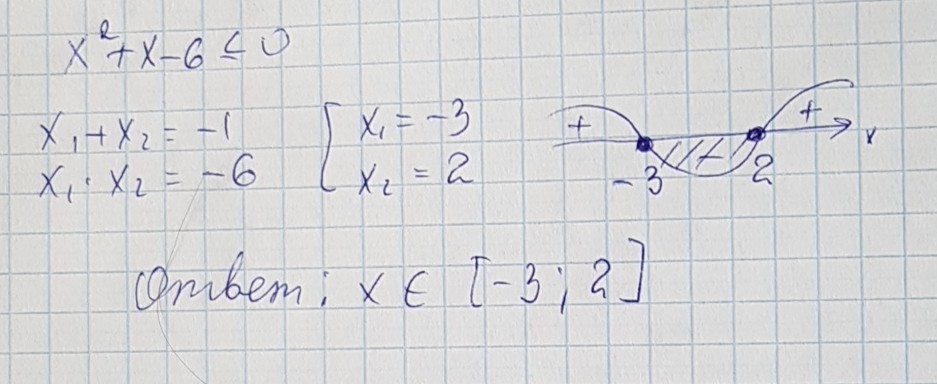 x²+x-6≤0
x₁+x₂=-1 [ x₁=-3
x₁·x₂=-6 [ x₂=2
+ - + x
-3 2
Ответ: x ∈ [-3; 2]